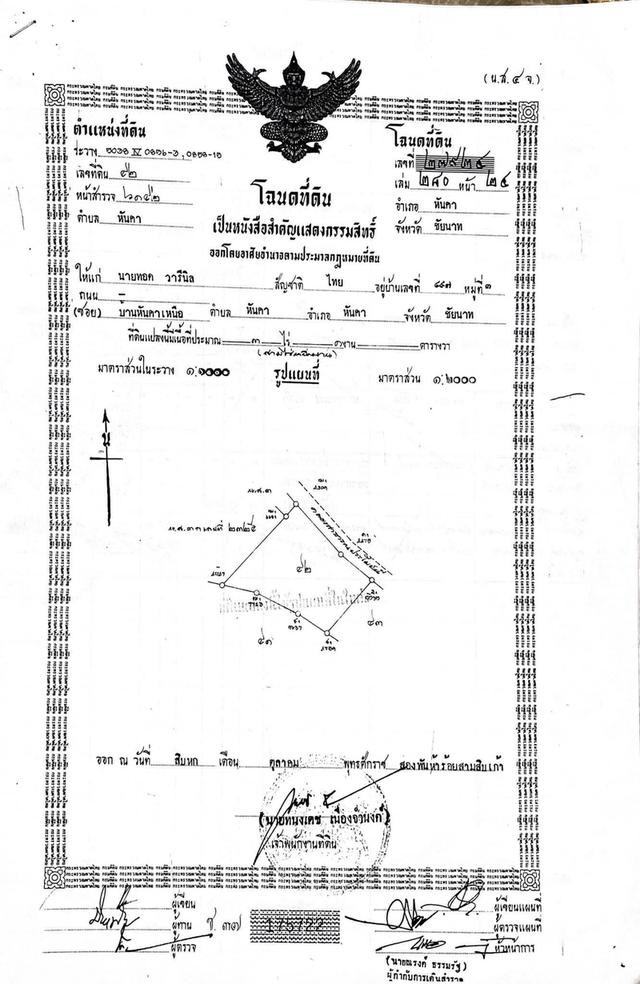 (น.ส.๔ จ.)
ตำแหน่งที่ดิน
ระวาง 5038 IV 0856-3, 0858-15
เลขที่ดิน ๕๒
หน้าสำรวจ
ตำบล หันคา
โฉนดที่ดิน
เลขที่ ๒๗๙๒๕
เล่ม ๒๘๐ หน้า ๒๕
อำเภอ หันคา
จังหวัด ชัยนาท
โฉนดที่ดิน
เป็นหนังสือสำคัญแสดงกรรมสิทธิ์
ออกโดยอาศัยอำนาจตามประมวลกฎหมายที่ดิน
ให้แก่ นายทอด วารีนิล สัญชาติ ไทย อยู่บ้านเลขที่ หมู่ที่ ๓
ถนน -
(ซอย) บ้านหันคาเหนือ ตำบล หันคา อำเภอ หันคา จังหวัด ชัยนาท
ที่ดินแปลงนี้มีเนื้อที่ประมาณ ๓ ไร่ งาน ตารางวา
มาตราส่วนในระวาง ๑:๑๐๐๐ รูปแผนที่ มาตราส่วน ๑:๒๐๐๐
น
น.ส.๓
๕๒
๕๑
๕๓
ออก ณ วันที่ สิบหก เดือน ตุลาคม พุทธศักราช สองพันห้าร้อยสามสิบเก้า
เจ้าพนักงานที่ดิน
ผู้เขียน
ผู้ทาน
ผู้ตรวจ
ช. ๓๗
175722
ผู้เขียนแผนที่
ผู้ตรวจแผนที่
หัวหน้าการ
(นายณรงค์ ธรรมรัฐ)
ผู้กำกับการเดินสำรวจ